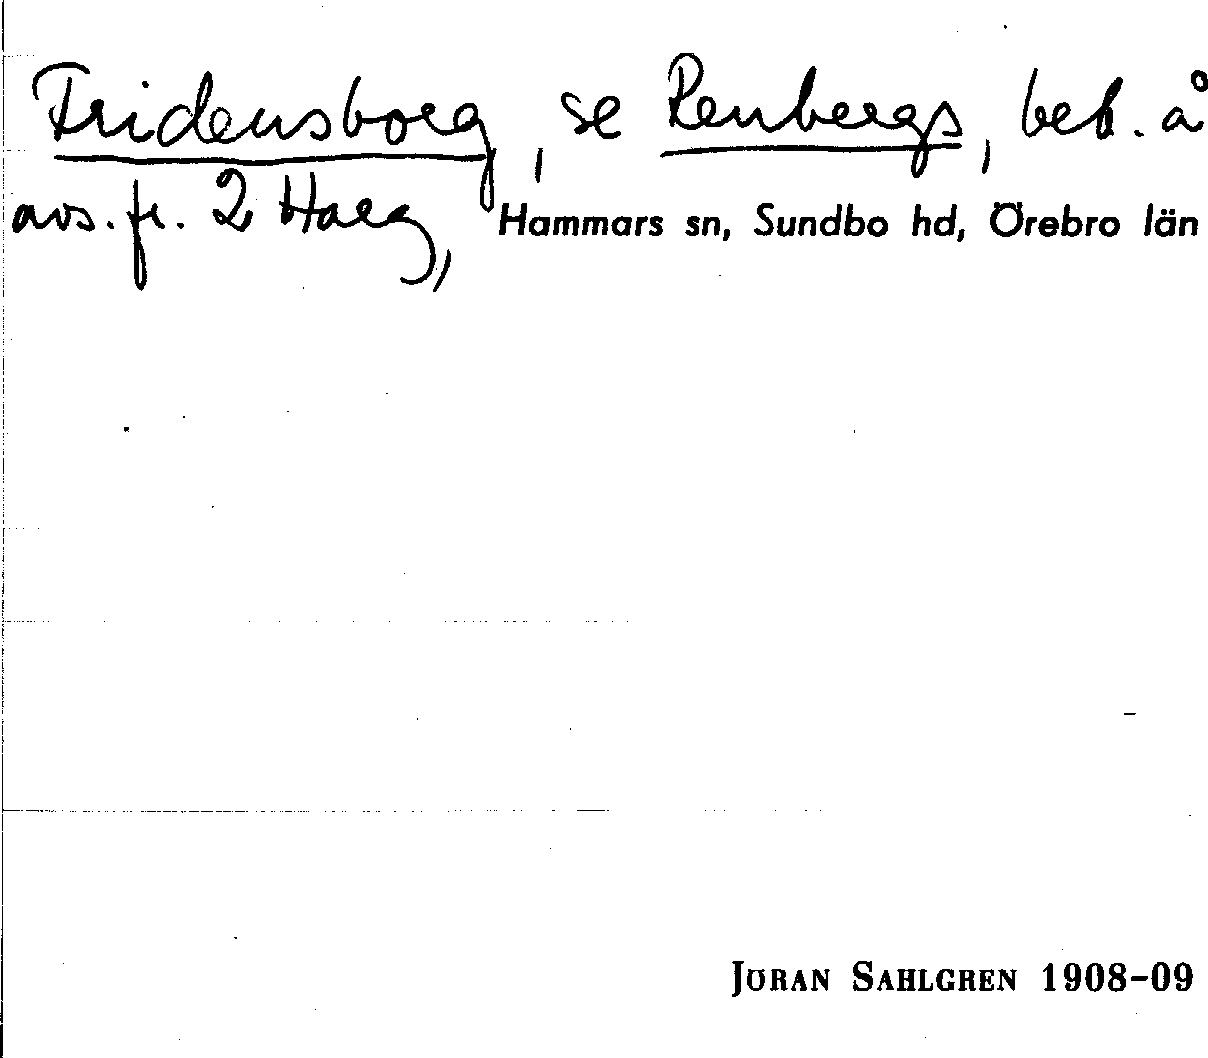 Fridensborg, se Renbergs, beb. å
avs. fr. 2 Harg, Hammars sn, Sundbo hd, Örebro län
JÖRAN SAHLGREN 1908-09